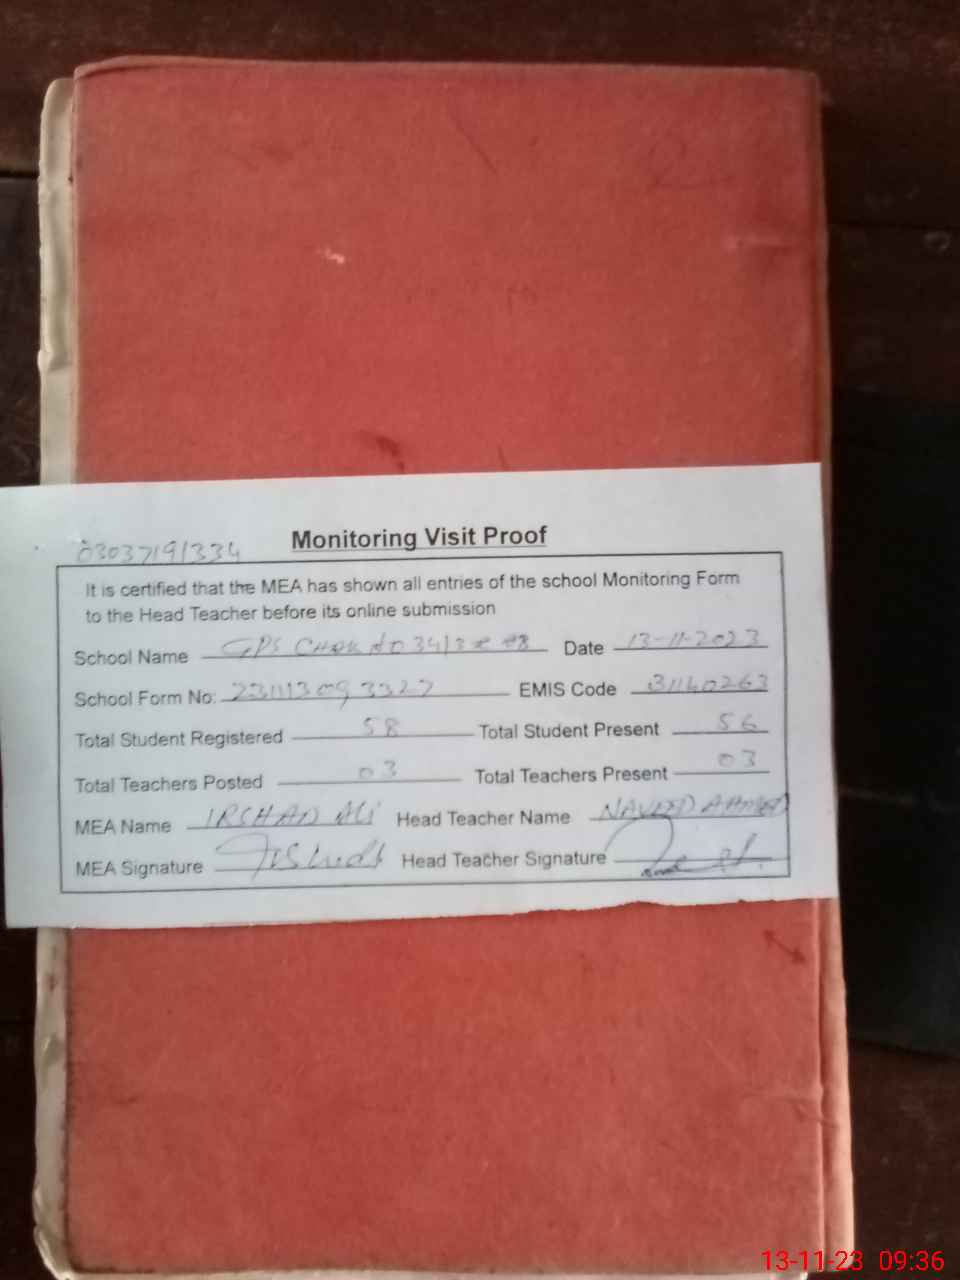 Monitoring Visit Proof
03037191334
It is certified that the MEA has shown all entries of the school Monitoring Form
to the Head Teacher before its online submission
School Name GPS CHAK NO 34/3R Date 13-11-2023
School Form No: 231113093327 EMIS Code 31140263
Total Student Registered 58 Total Student Present 56
Total Teachers Posted 03 Total Teachers Present 03
MEA Name IRSHAD ALI Head Teacher Name NAVEED AHMED
MEA Signature Irshad Head Teacher Signature
13-11-23 09:36